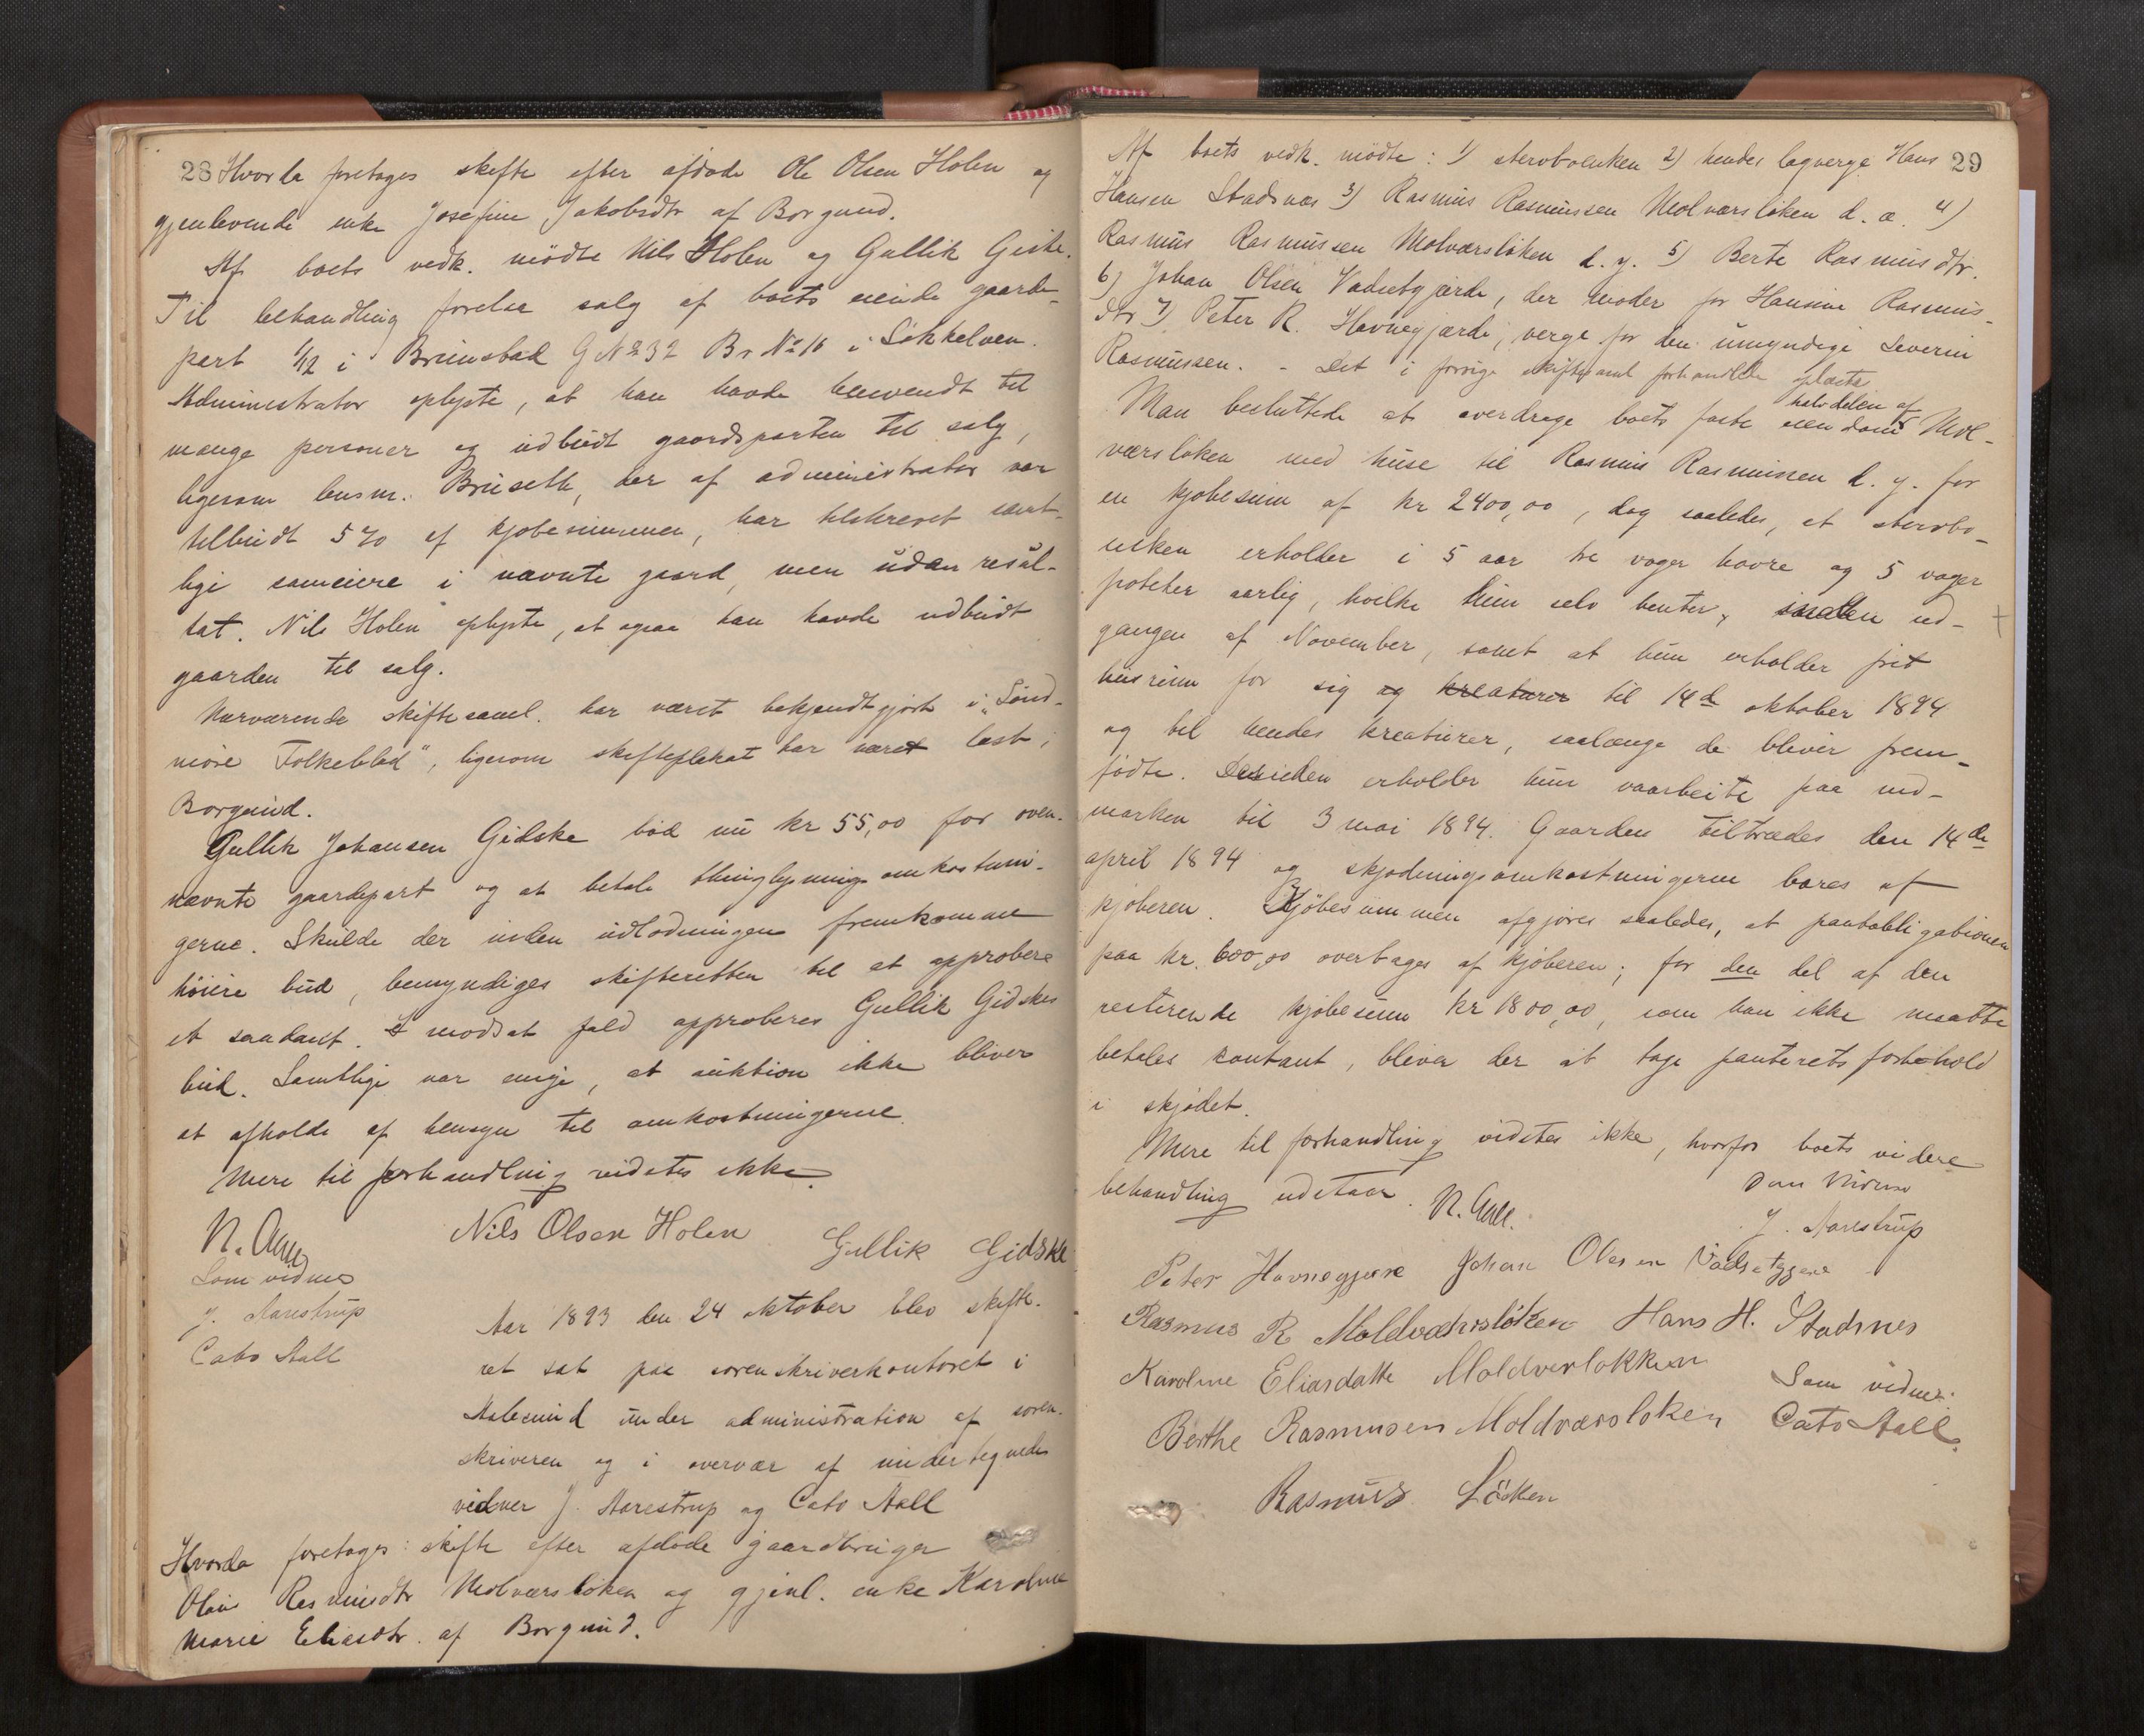 28 Hvorda foretoges skifte efter afdøde Ole Olsen Holen og
gjenlevende enke Josefine Jakobsdtr af Borgund.
Af boets vedk. mødte Nils Holen og Gullik Giske.
Til behandling forelaa salg af boets eiende gaards-
part 1/12 i Brunstad G No 32 Br No 16 i Søkkelven.
Administrator oplyste, at han havde henvendt til
mange personer og udbudt gaardsparten til salg,
ligesom lensm. Bruseth, der af administrator var
tilbudt 5 % af kjøbesummen, har tilskrevet samt-
lige sameiere i nævnte gaard, men uden resul-
tat. Nils Holen oplyste, at ogsaa han havde udbudt
gaarden til salg.
Nærværende skiftesaml. har været bekjendtgjort i „Sønd-
møre Folkeblad", ligesom skifteplakat har været læst i
Borgund.
Gullik Johansen Gidske bød nu kr 55,00 for oven-
nævnte gaardspart og at betale thinglysningsomkostnin-
gerne. Skulde der inden udlodningen fremkomme
høiere bud, bemyndiges skifteretten til at approbere
et saadant. I modsat fald approberes Gullik Gidskes
bud. Samtlige var enige, at auktion ikke bliver
at afholde af hensyn til omkostningerne.
Mere til forhandling vidstes ikke.
N. Aall
Nils Olsen Holen Gullik Gidske
Som vidner
J. Aarestrup
Cato Aall
Aar 1893 den 24 oktober blev skifte-
ret sat paa sorenskriverkontoret i
Aalesund under administration af soren-
skriveren og i overvær af undertegnede
vidner J. Aarestrup og Cato Aall
Hvorda foretoges: skifte efter afdøde gaardbruger
Rasmusdtr Molværsløken og gjenl. enke Karoline
Marie Eliasdtr. af Borgund.
29
Af boets vedk. mødte: 1) stervboenken 2) hendes lagverge Hans
Hansen Stadsnæs 3) Rasmus Rasmussen Molværsløken d. æ. 4)
Rasmus Rasmussen Molværsløken d. y. 5) Berte Rasmusdtr.
6) Johan Olsen Vadsetgjærde, der møder for Hansine Rasmus-
dtr 7) Peter R. Havnegjærde, verge for den umyndige Severin
Rasmussen. - Det i forrige skiftesaml forhandlede oplæstes
halvdelen af
Man besluttede at overdrage boets faste eiendom Mol-
værsløken med huse til Rasmus Rasmussen d. y. for
en kjøbesum af kr 2400,00, dog saaledes, at stervbo-
enken erholder i 5 aar tre voger havre og 5 voger
poteter aarlig, hvilke hun selv henter, inden ud-
gangen af November, samt at hun erholder frit
husrum for sig og kreaturer til 14de oktober 1894
og til hendes kreaturer, saalænge de bliver frem-
fødte. Desuden erholder hun vaarbeite paa ind-
marken til 3 mai 1894. Gaarden tiltrædes den 14de
april 1894 og skjødningsomkostningerne bæres af
kjøberen. Kjøbesummen afgjøres saaledes, at pantobligationen
paa kr. 600,00 overtages af kjøberen; for den del af den
resterende kjøbesum kr 1800,00, som han ikke maatte
betales kontant, bliver der at tage panterets forbehold
i skjødet.
Mere til forhandling vidstes ikke, hvorfor boets videre
behandling udstaar. N. Aall.
Som vidner
J. Aarestrup
Peter Havnegjære Johan Olesen Vadsetgjære
Rasmus R Moldværsløken Hans H. Stadsnes
Karoline Eliasdatte Moldverløkken Som vidner:
Berthe Rasmusen Moldværsløken Cato Aall.
Rasmus Løken